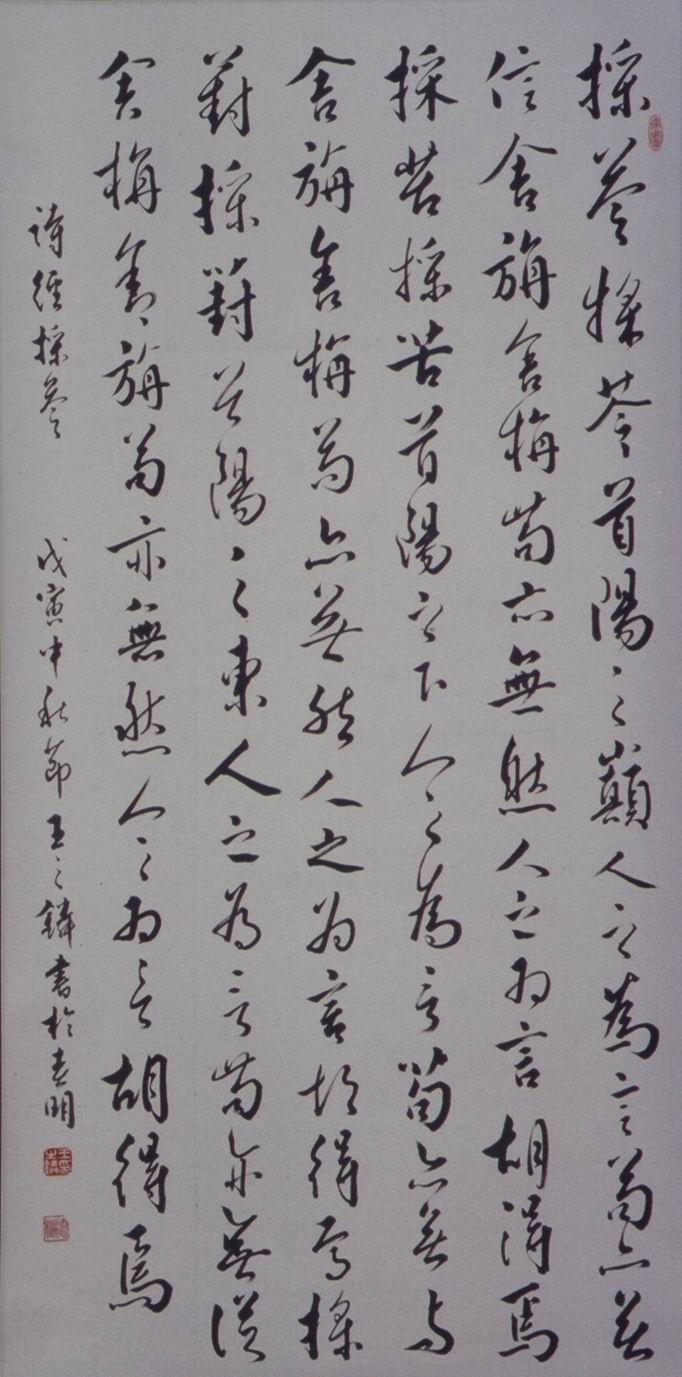 採苓採苓首陽之巔人之為言苟亦無
信舍旃舍旃苟亦無然人之為言胡得焉
採苦採苦首陽之下人之為言苟亦無與
舍旃舍旃苟亦無然人之為言胡得焉採
葑採葑首陽之東人之為言苟亦無從
舍旃舍旃苟亦無然人之為言胡得焉
詩經採苓 戊寅中秋節王之鏻書於春明